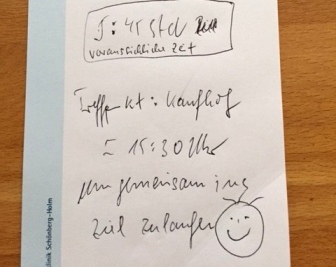 5:45 Std
voraussichliche Zeit
Treffpkt: Kaufhof
15:30 Uhr
um gemeinsam ins
Ziel zu laufen
Klinik Schönberg-Holm